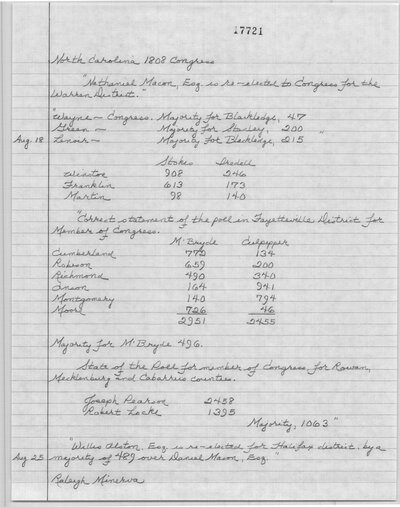 17721
North Carolina 1808 Congress
"Nathaniel Macon, Esq is re-elected to Congress for the
Warren District."
"Wayne - Congress. Majority for Blackledge, 47
Green - Majority for Stanley, 200
Aug. 18 Lenoir - Majority for Blackledge, 215 "
Stokes Iredell
908 246
Franklin 613 173
Martin 98 140
"Correct statement of the poll in Fayetteville District for
Member of Congress.
McBryde Culpepper
Cumberland 772 134
Robeson 659 200
Richmond 490 340
Anson 164 941
Montgomery 140 794
Moore 726 46
2951 2455
Majority for McBryde 496.
State of the Poll for member of Congress for Rowan,
Mecklenburg and Cabarrus counties.
Joseph Pearson 2458
Robert Locke 1395
Majority, 1063 "
"Willis Alston, Esq is re-elected for Halifax district, by a
Aug 25 majority of 489 over Daniel Mason, Esq. "
Raleigh Minerva